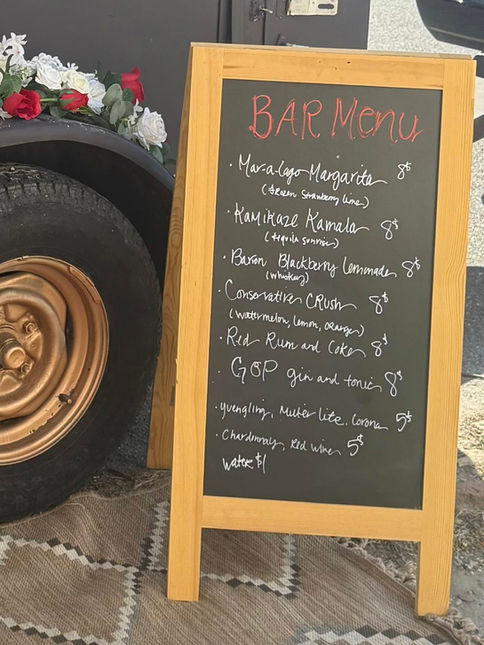 BAR Menu
· Mar-a-Lago Margarita 8$
(frozen strawberry lime)
· Kamikaze Kamala 8$
(tequila sunrise)
· Baron Blackberry Lemonade 8$
(whiskey)
· Conservative CRush 8$
(watermelon, lemon, orange)
· Red Rum and Coke 8$
· GOP gin and tonic 8$
· yuengling, Miller Lite, Corona 5$
· Chardonnay, Red Wine 5$
water $1